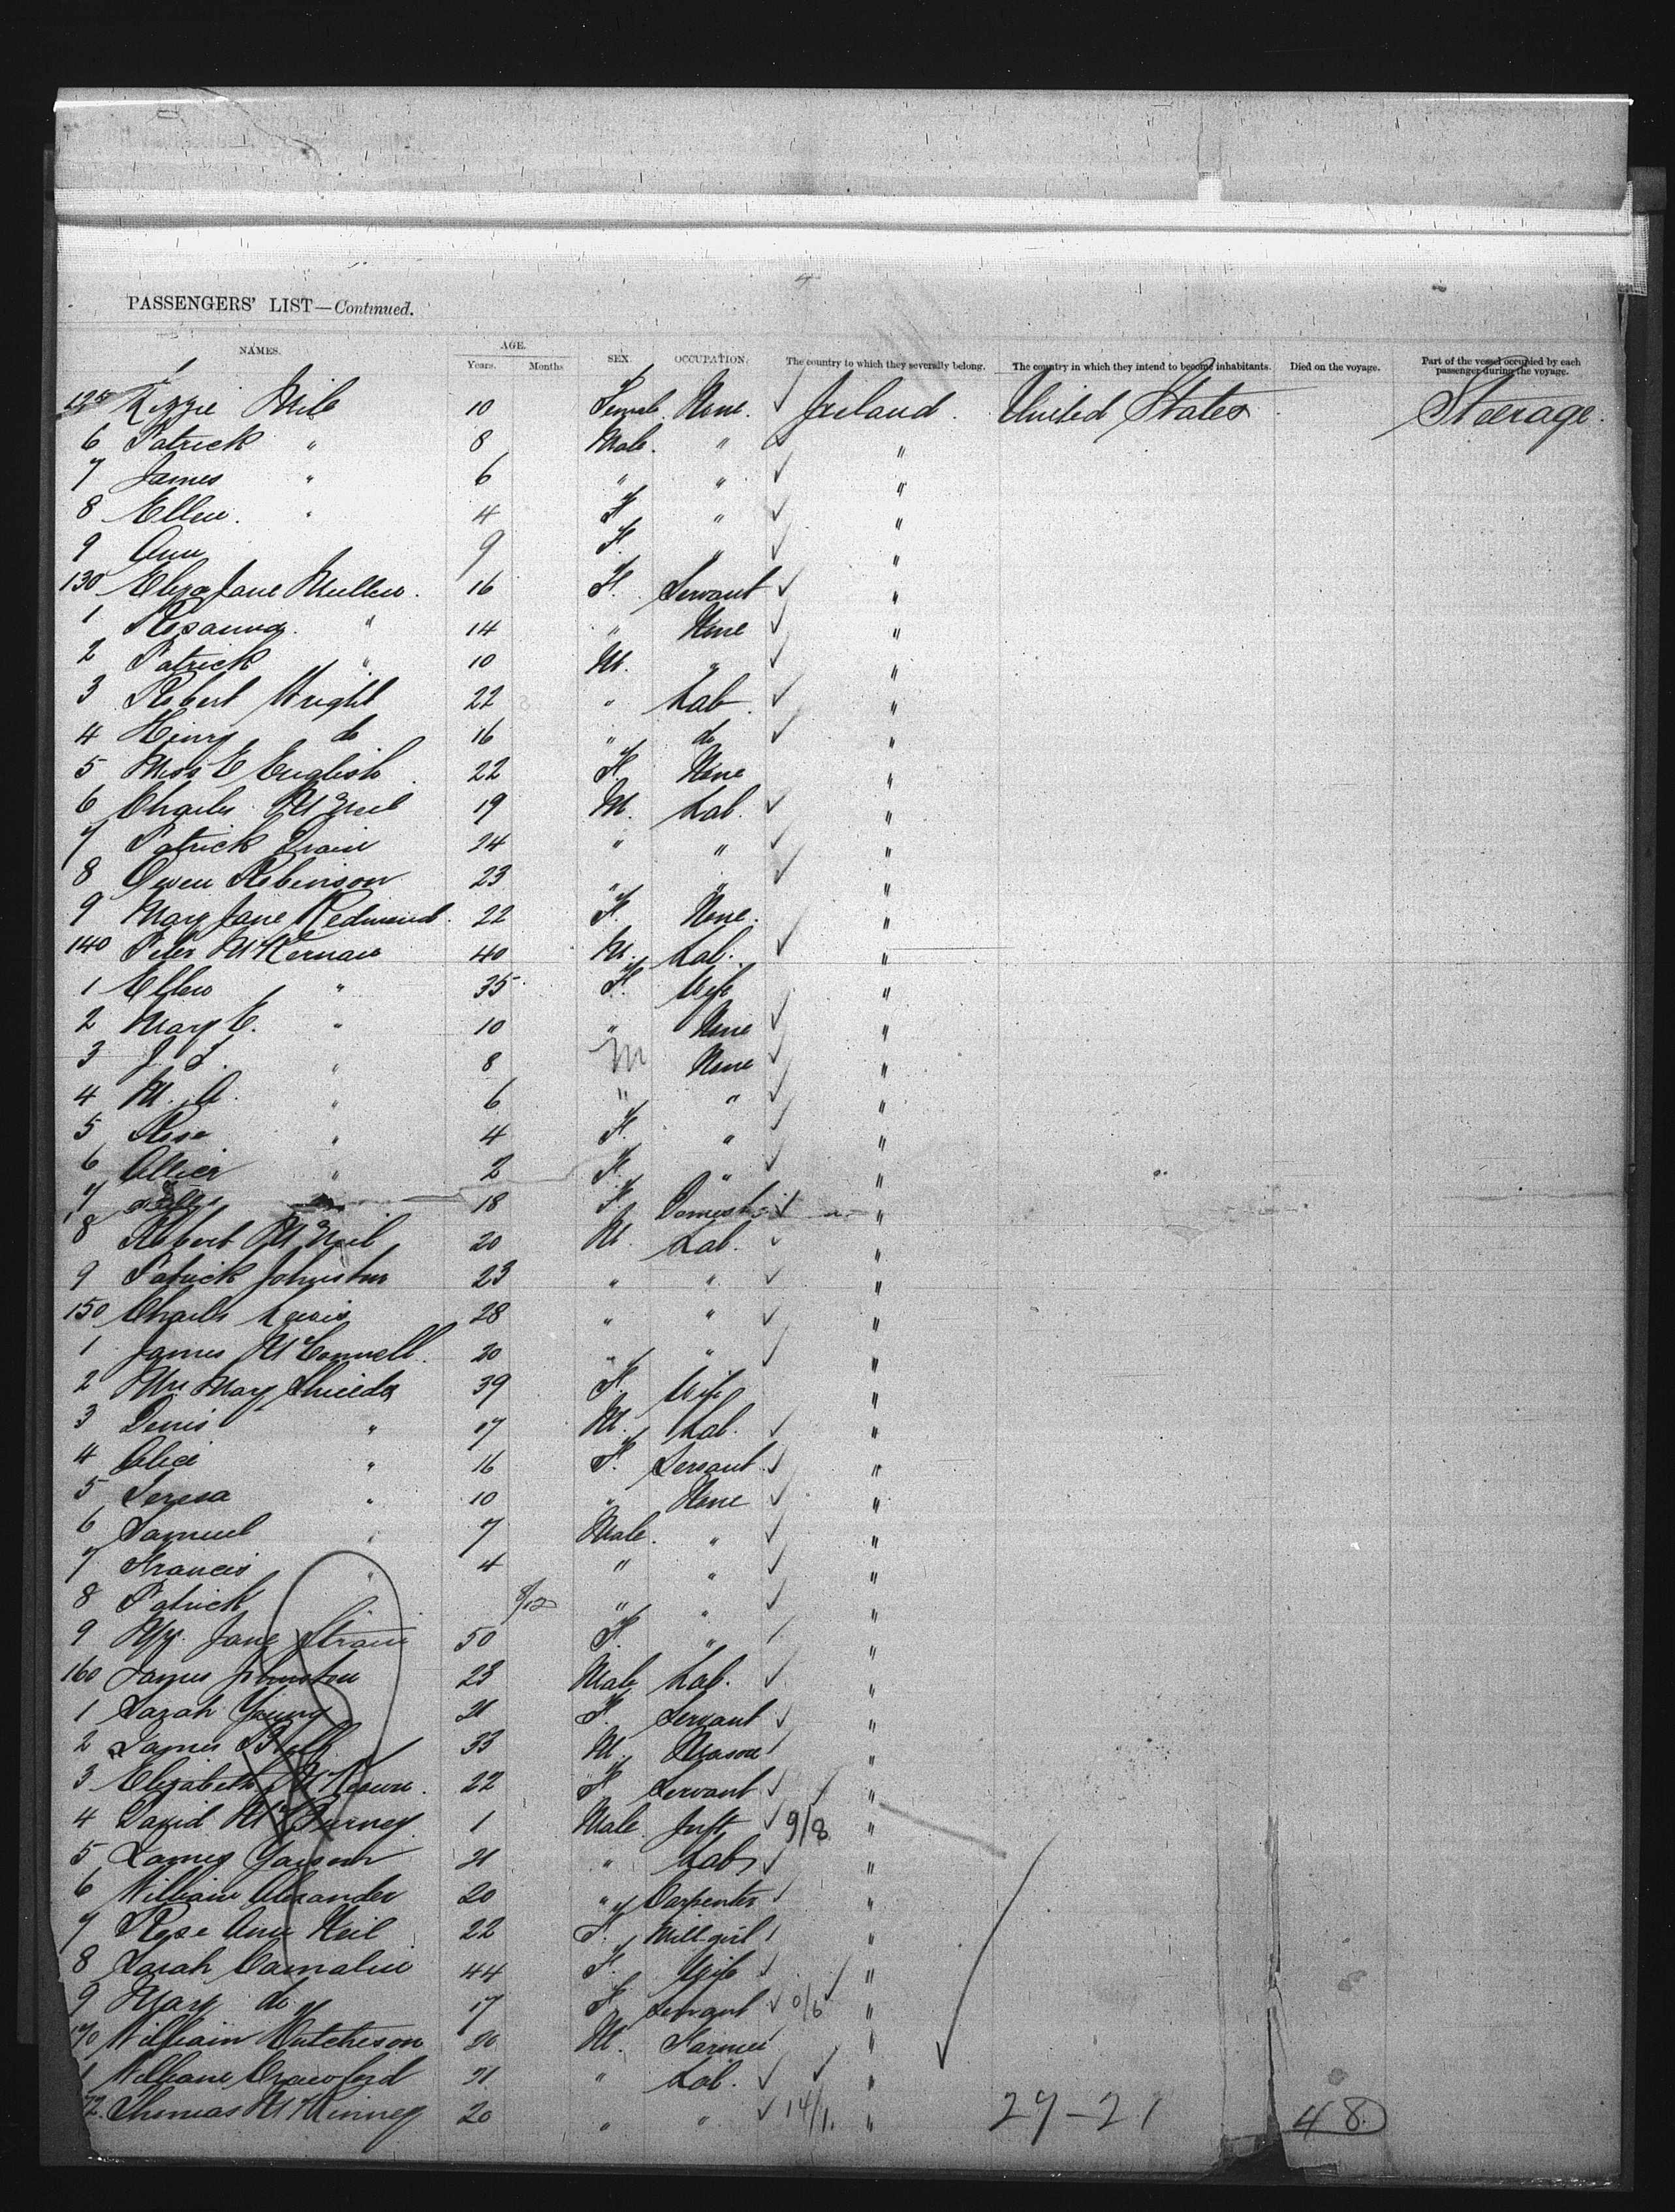 PASSENGERS' LIST—Continued.
NAMES. AGE. SEX. OCCUPATION. The country to which they severally belong. The country in which they intend to become inhabitants. Died on the voyage. Part of the vessel occupied by each passenger during the voyage.
Years. Months
125 Lizzie 10 Female. None. Ireland. United States Steerage.
6 Patrick " 8 Male. " "
7 James " 6 " " "
8 Ellen. " 4 F " "
9 Ann 9 F. " "
130 Eliza Jane Mullen. 16 F. Servant "
1 Rosanna. " 14 " None "
2 Patrick " 10 M. " "
3 Robert Wright 22 " Lab. "
4 Henry do 16 " do "
5 Miss E English 22 F. None "
6 Charles McNeil 19 M. Lab. "
7 Patrick 24 " " "
8 Owen Robinson 23 " " "
9 Mary Jane Redmond. 22 F. None. "
140 Peter McKernan 40 M. Lab. "
1 Ellen " 35 F. Wife "
2 Mary E. " 10 " None "
3 " 8 M None "
4 M. A. " 6 " " "
5 Rose " 4 F. " "
6 " 2 F. " "
7 18 F. Domestic "
8 Robert McNeil 20 M. Lab. "
9 Patrick Johnston 23 " " "
150 Charles Lewis 28 " " "
1 James McConnell. 20 " " "
2 Mrs Mary Shields 39 F. Wife "
3 Denis " 17 M. Lab. "
4 Alice " 16 F. Servant "
5 Teresa " 10 " None "
6 Samuel " 7 Male. " "
7 Francis " 4 " " "
8 Patrick 8/12 " " "
9 Jane 50 F. " "
160 James Johnston 23 Male Lab. "
1 Sarah Young 21 F. Servant "
2 James Bell 33 M. Mason "
3 Elizabeth McKeown. 22 F Servant "
4 David 1 Male Inft 9/8 "
5 James 21 " Lab "
6 William Alexander 20 " Carpenter "
7 Rose Ann Neil 22 F. Mill-girl "
8 Sarah 44 F. Wife "
9 Mary do 17 F Servant 0/6 "
170 William Hutcheson 20 M. Farmer "
1 William Crawford 21 " Lab. "
72. Thomas McKinney 20 " " 14/1. " 27-21 48